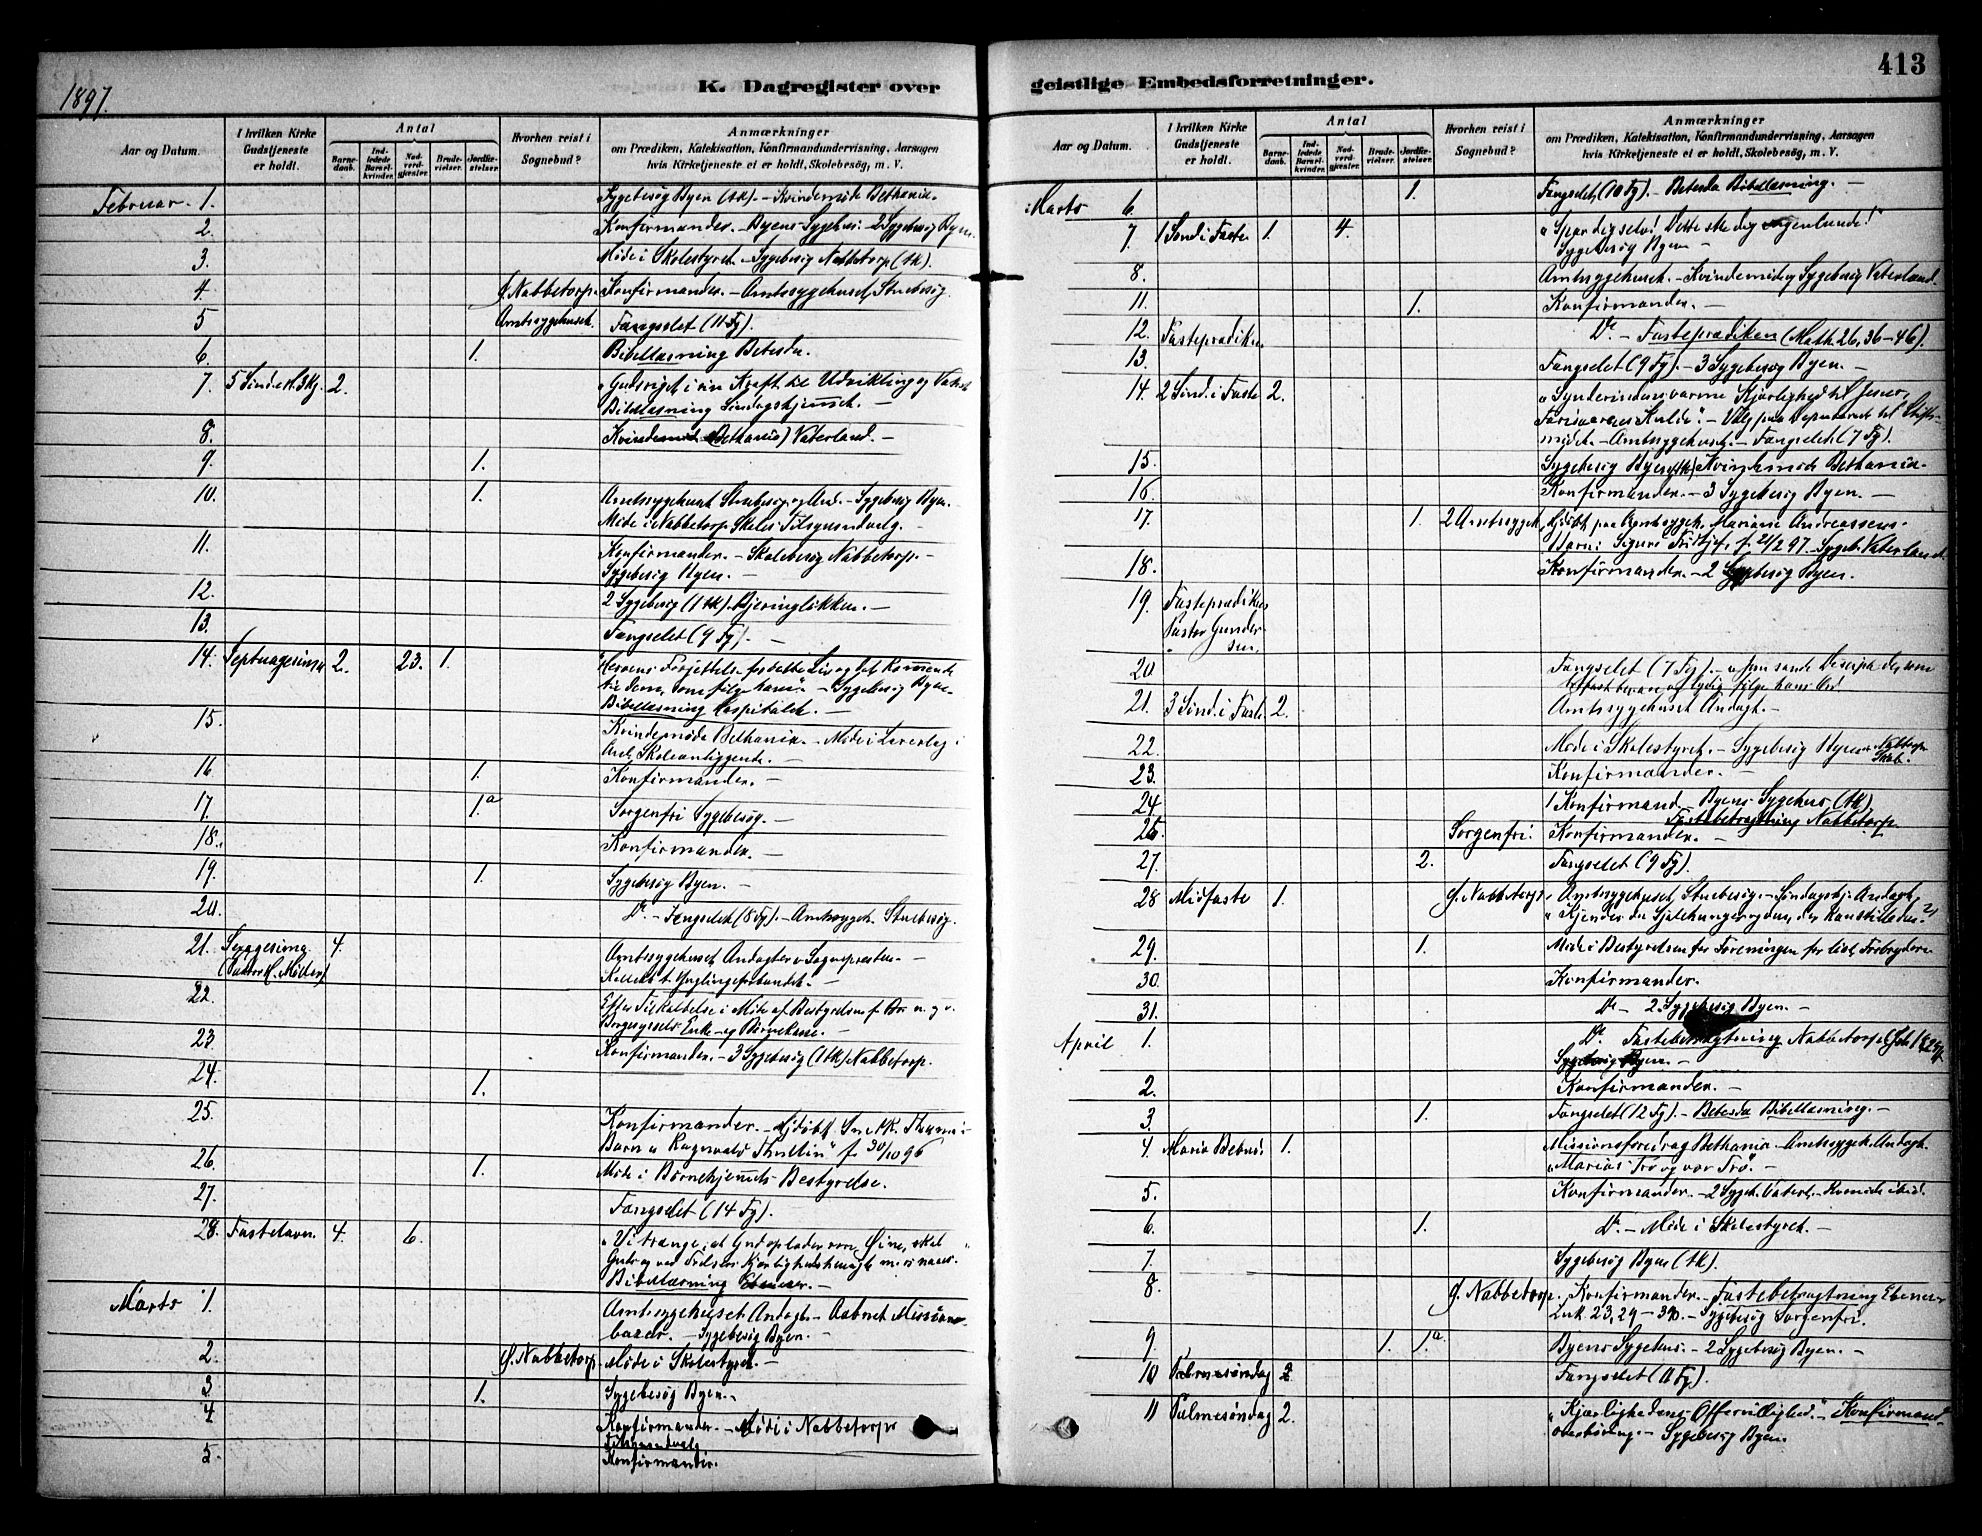 1897.
K. Dagregister over
Aar og Datum.
I hvilken Kirke Gudstjeneste er holdt.
Antal
Barnedaab.
Indledede Barselkvinder.
Nadverdgjæster.
Brudevielser.
Jordfæstelser
Hvorhen reist i Sognebud?
Anmærkninger
om Prædiken, Katekisation, Konfirmandundervisning, Aarsagen
hvis Kirketjeneste ei er holdt, Skolebesög, m. V.
Februar 1. Sygebesøg Byen (1k). – Kvindemøde Bethania.
2. Konfirmander. – Byens Sygehus. – 2 Sygebesøg Byen.
3. Møde i Skolestyret. – Sygebesøg Nabbetorp (1k).
4. G. Nabbetorp. Konfirmander. – Amtssygehuset, Stuebesøg.
5 Amtssygehuset. Fængselet (11 Fg).
6. 1. Bibellæsning Betesda.
7. 5 Sønd e. H. 3 Kg. 2. „Gudsriget, i sin Kraft til Udvikling og Vækst
Bibellæsning Søndagshjemmet. –
8. Kvindemøde (Bethania) Vaterland. –
9. 1.
10. 1. Amtssygehuset Stuebesøg og And. – Sygebesøg Byen.
Møde i Nabbetorp Skoles Tilsynsudvalg. –
11. Konfirmander. – Skolebesøg Nabbetorp. –
Sygebesøg Byen. –
12. 2 Sygebesøg (1 1k). Bjeringløkken. –
13. Fængselet (9 Fg). –
14. Septuagesima 2. 23. 1. "Herrens Forjættelse for dette Liv og det kommende
til dem, som følge ham". – Sygebesøg Byen.
Bibellæsning Hospitalet. –
15. Kvindemøde Bethania. – Møde i
Skoleanliggende. –
16 1. Konfirmander. –
17. 1.a Sorgenfri Sygebesøg. –
18. Konfirmander. –
19. 1. Sygebesøg Byen. –
20. Do – Fængselet (8 Fg). – Amtssygeh. Stuebesøg.
21. Sexagesima 4.
(Pastor H. Møller) Amtssygehuset Andagt v. Sognepresten. –
Kollekt t. Ynglingeforbundet. –
22. Efter Tilkaldelse i Møde af Bestyrelsen f.
Borgesyssels Enke- og Børnekasse. –
23. Konfirmander. – 3 Sygebesøg (1k) Nabbetorp.
24. 1.
25. Konfirmander. – Hjdøbt
Barn „Ragnvald Thullin" f. 30/10 96
26. 1. Møde i Børnehjemmets Bestyrelse.
27. Fængselet (14 Fg).
28. Fastelavn. 4. 6. „Vi trænge, at Gud oplader vore Øine, skal

Bibellæsning Ebenezer. –
Marts 1. Amtssygehuset Andagt – Aabnet Missionsbazar. – Sygebesøg Byen. –
2. G. Nabbetorp. Møde i Skolestyret. –
3. 1. Sygebesøg Byen. –
4 Konfirmander. – Møde i Nabbetorps
Tilsynsudvalg
5. Konfirmander.
413
geistlige Embedsforretninger.
Aar og Datum.
I hvilken Kirke Gudstjeneste er holdt.
Antal
Barnedaab.
Indledede Barselkvinder.
Nadverdgjæster.
Brudevielser.
Jordfæstelser
Hvorhen reist i Sognebud?
Anmærkninger
om Prædiken, Katekisation, Konfirmandundervisning, Aarsagen
hvis Kirketjeneste ei er holdt, Skolebesög, m. V.
Marts 6. 1. Fængselet (10 Fg). – Betesda Bibellæsning. –
7. 1 Sønd i Faste 1. 4. „Spar dig selv! Dette ske dig ingenlunde!"
Sygebesøg Byen –
8. Amtssygehuset. – Kvindemøde, Sygebesøg Vaterland.
11. 1. Konfirmander. –
12. Fasteprædiken Do – Fasteprædiken (Math 26, 36–46).
13. Fængselet (9 Fg). – 3 Sygebesøg Byen. –
14. 2 Sønd. i Faste 2. „Synderindens varme Kjærlighed til Jesus,
Farisæernes Kulde". – Valg paa Deputerede til Stiftsmødet. – Amtssygehuset. – Fængselet (7 Fg).
15. Sygebesøg Byen (1k) Kvindemøde Bethania.
16. Konfirmander. – 3 Sygebesøg Byen. –
17. 1. 2 Amtssygeh. Hjdøbt paa Amtssygeh. Mariane Andreassens
Barn: Sigurd Fridtjof, f. 21/2 97. Sygeb. Vaterland.
18. Konfirmander. – 2 Sygebesøg Byen.
19. Fasteprædiken
Pastor Gundersen.
20. Fængselet (7 Fg). –
21. 3 Sønd. i Faste 2. Amtssygehuset Andagt. –
22. Møde i Skolestyret. – Sygebesøg Byen
23. Konfirmander. –
24. 1 Konfirmand – Byens Sygehus (1k)
Fastebetragtning Nabbetorp.
25. Sorgenfri. Konfirmander. –
27. 2. Fængselet (9 Fg).
28 Midfaste 1. G. Nabbetorp. Amtssygehuset, Stuebesøg. – Søndagshj. Andagt,
„Kjender du Sjælehunger og den, der kan stille den?"
29. 1. Møde i Bestyrelsen for Foreningen for løsl. Forbrydere.
30. Konfirmander.
31. Do – 2 Sygebesøg Byen. –
April 1. Do Fastebetragtning Nabbetorp
Sygebesøg Byen. –
2. Konfirmander. –
3. 1. Fængselet (12 Fg). – Betesda Bibellæsning. –
4. Maria Bebud. 1. Missionsforedrag Bethania – Amtssygeh. Andagt.
„Marias Tro og vor Tro". –
5. Konfirmander. – 2 Sygeb. Vaterl. –
6. 1. Do – Møde i Skolestyret. –
7. Sygebesøg Byen (1k).
8. G. Nabbetorp. Konfirmander. – Fastebetragtning Ebenezer
Luk 23, 29–30. – Sygebesøg Sorgenfri.
9. 1. 1.a Byens Sygehus. – 2 Sygebesøg Byen. –
10 Palmesøndag 2 Fængselet (11 Fg).
11 Palmesøndag 2. „Kjærlighedens Offervillighed." – Konfirmand-
overhøring. – Sygebesøg Byen.